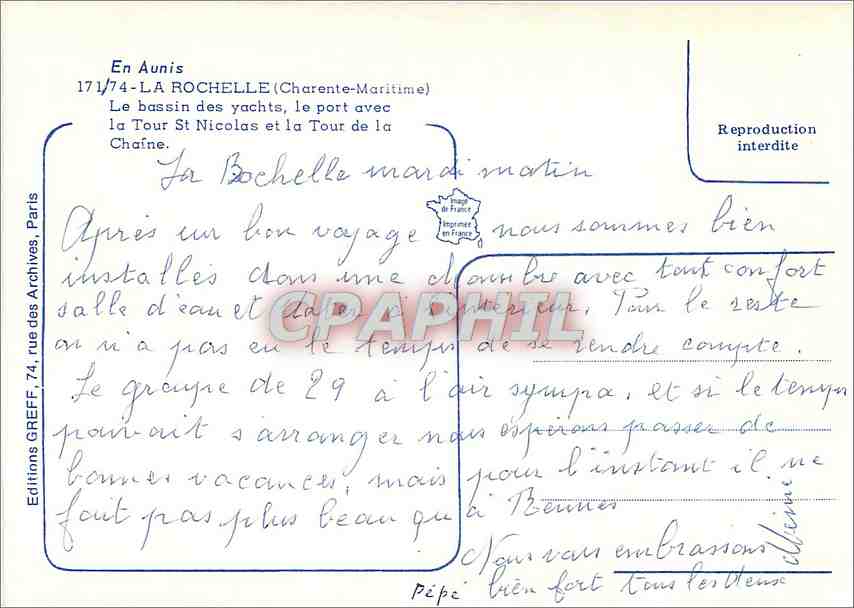 En Aunis
171/74-LA ROCHELLE (Charente-Maritime)
Le bassin des yachts, le port avec
la Tour St Nicolas et la Tour de la
Chaîne.
Reproduction
interdite
Editions GREFF, 74, rue des Archives, Paris
Image
de France
Imprimée
en France
La Rochelle mardi matin
Après un bon voyage, nous sommes bien
installés dans une chambre avec tout confort
salle d'eau et à l'intérieur. Pour le reste
on n'a pas eu le temps de se rendre compte.
Le groupe de 29 à l'air sympa. et si le temps
pouvait s'arranger nous espérons passer de
bonnes vacances, mais pour l'instant il ne
fait pas plus beau qu'à Rennes
Nous vous embrassons
bien fort tous les deux
Pépé
Mémé
CPAPHIL